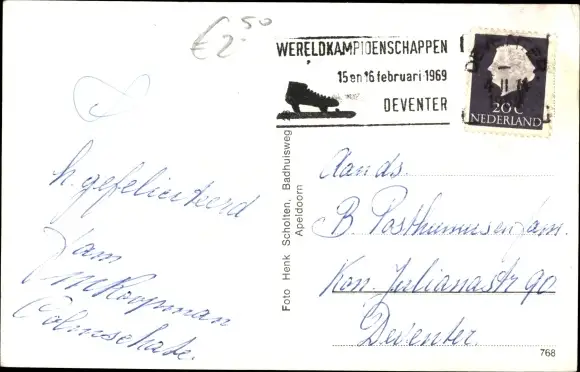 €2.50
WERELDKAMPIOENSCHAPPEN
15 en 16 februari 1969
DEVENTER
20c
NEDERLAND
h. gefeliciteerd
fam
Koopman
Colmschate.
Foto Henk Scholten, Badhuisweg
Apeldoorn
Aan ds.
B. Posthumus en fam.
Kon. Julianastr 90
Deventer.
768